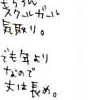 もちろん
スクールガール
気取り。
でも年より
なので
丈は長め。